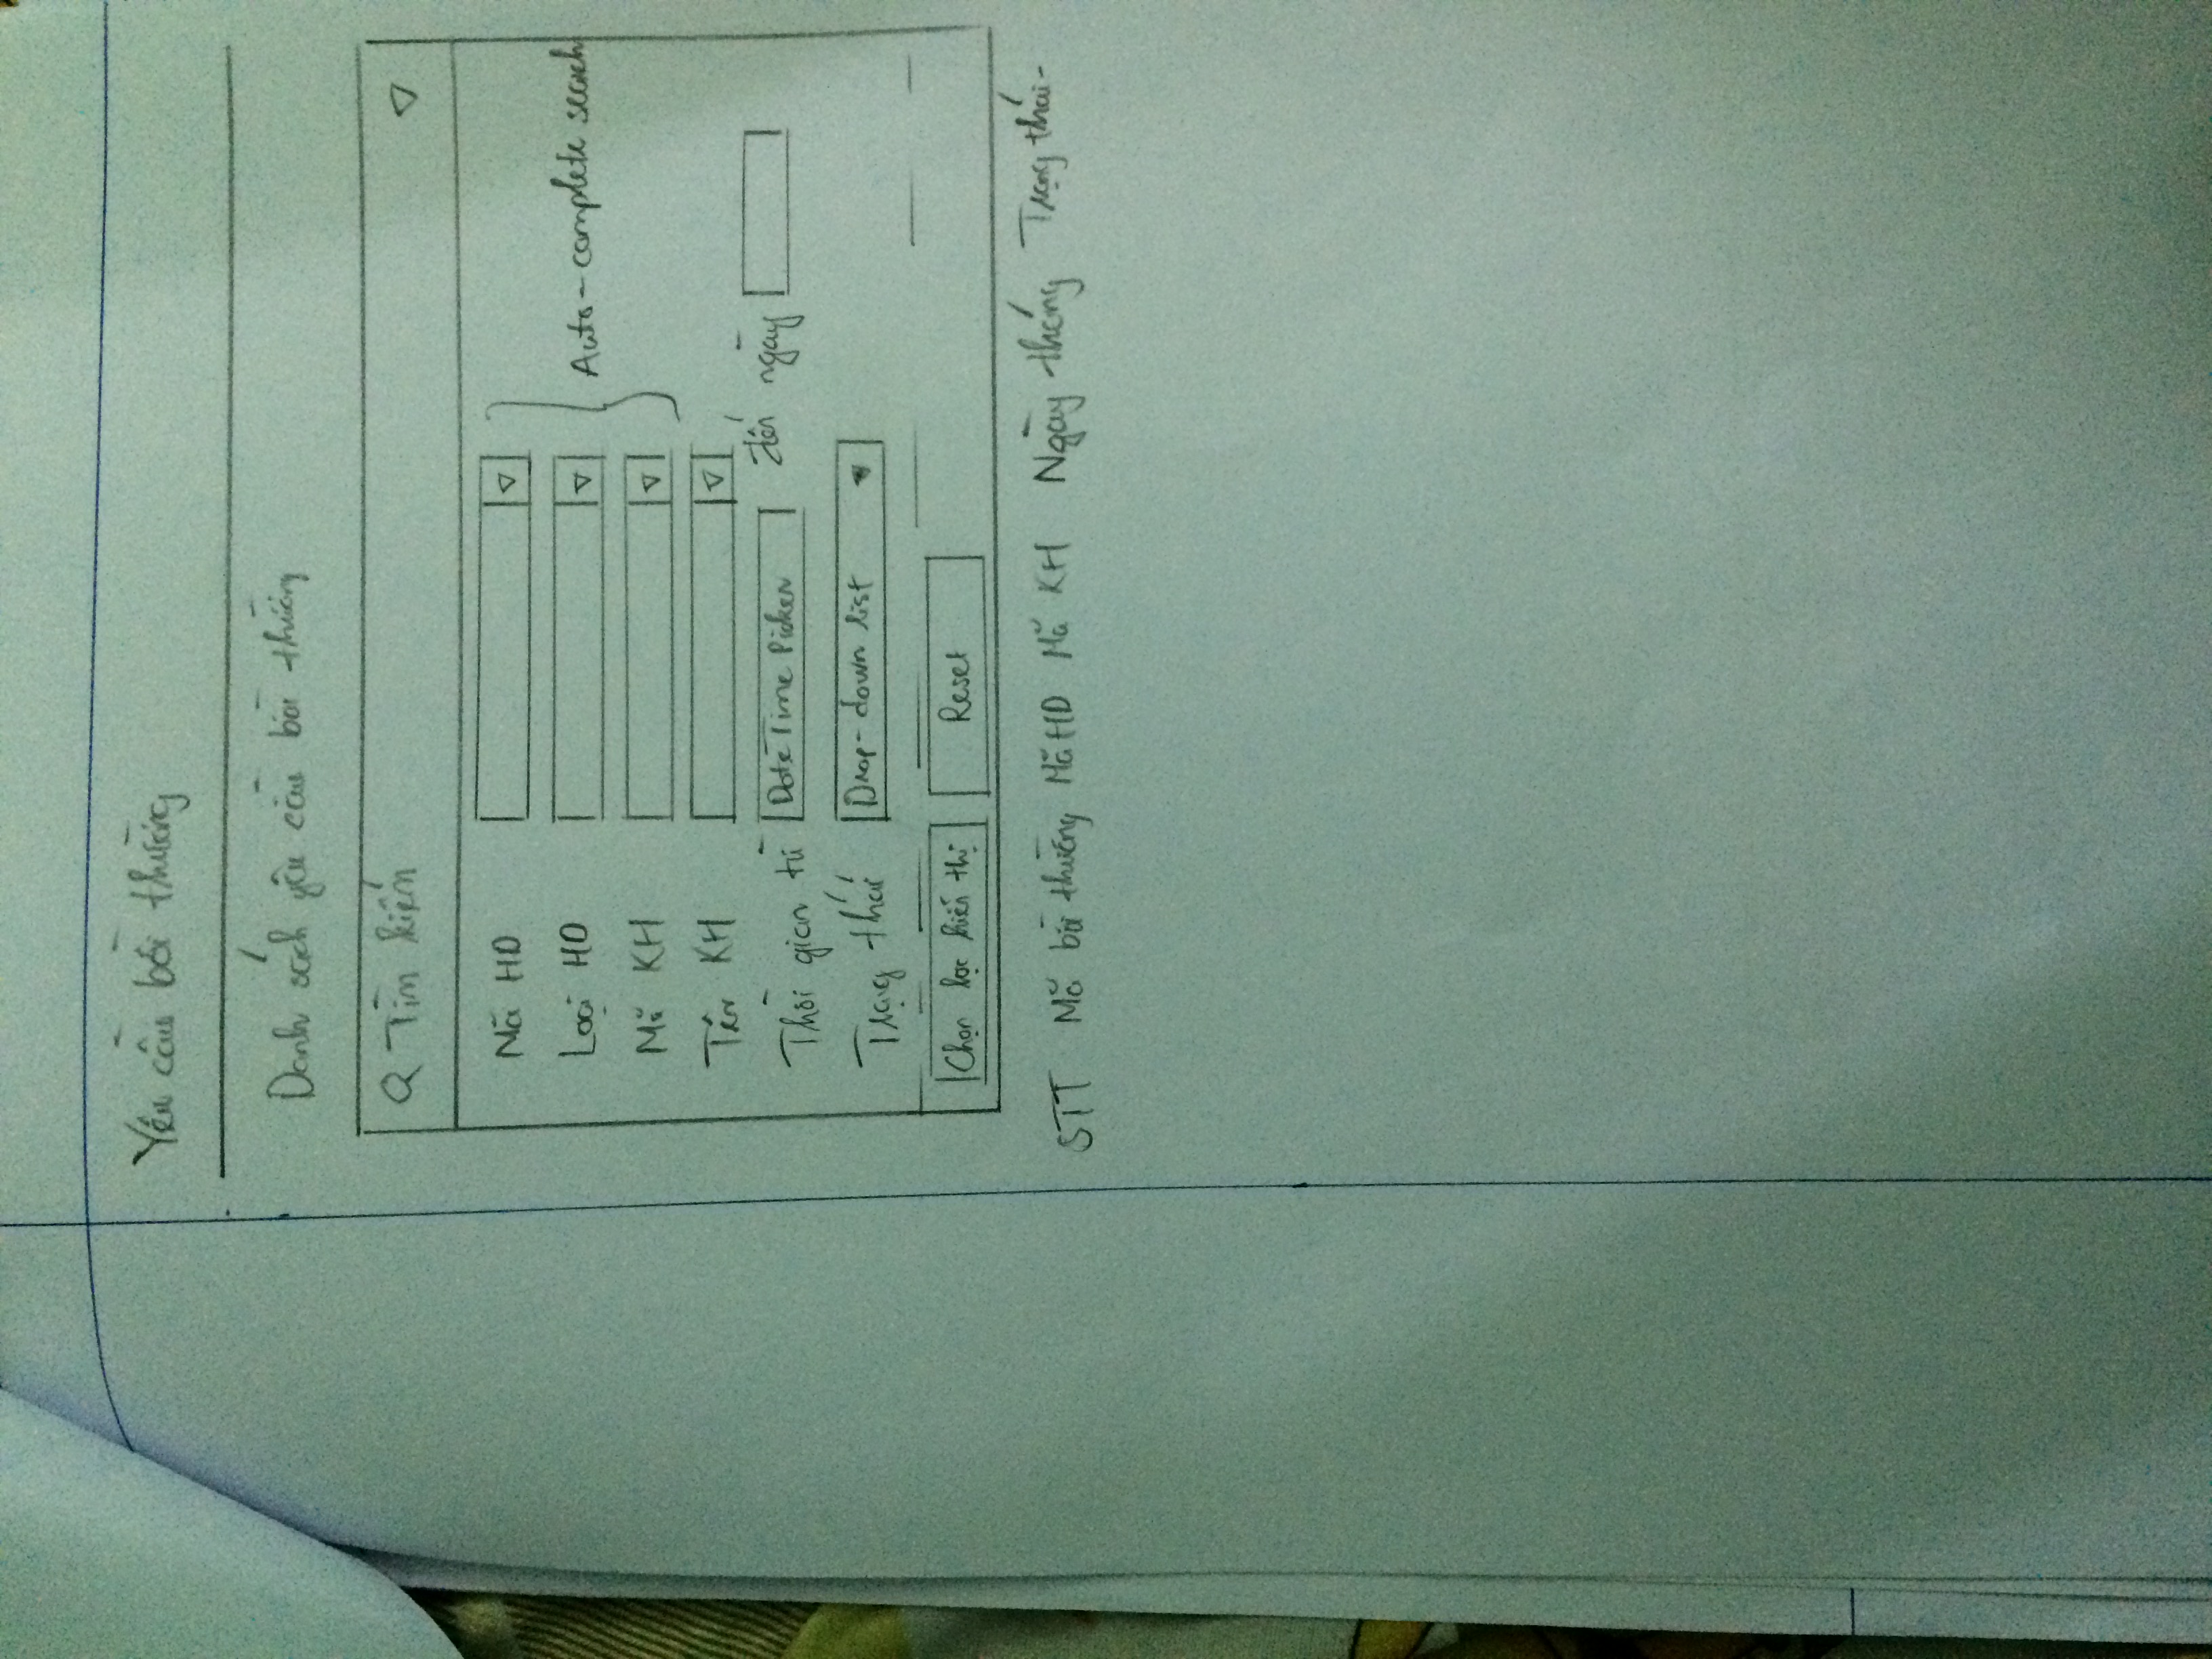 Yêu cầu bồi thường
Danh sách yêu cầu bồi thường
Tìm kiếm
Mã HD
Loại HD
Mã KH
Auto-complete search
Tên KH
Thời gian từ DateTime Picker đến ngày
Trạng thái Drop-down list
Chọn lọc hiển thị Reset
STT Mã bồi thường Mã HD Mã KH Ngày tháng Trạng thái